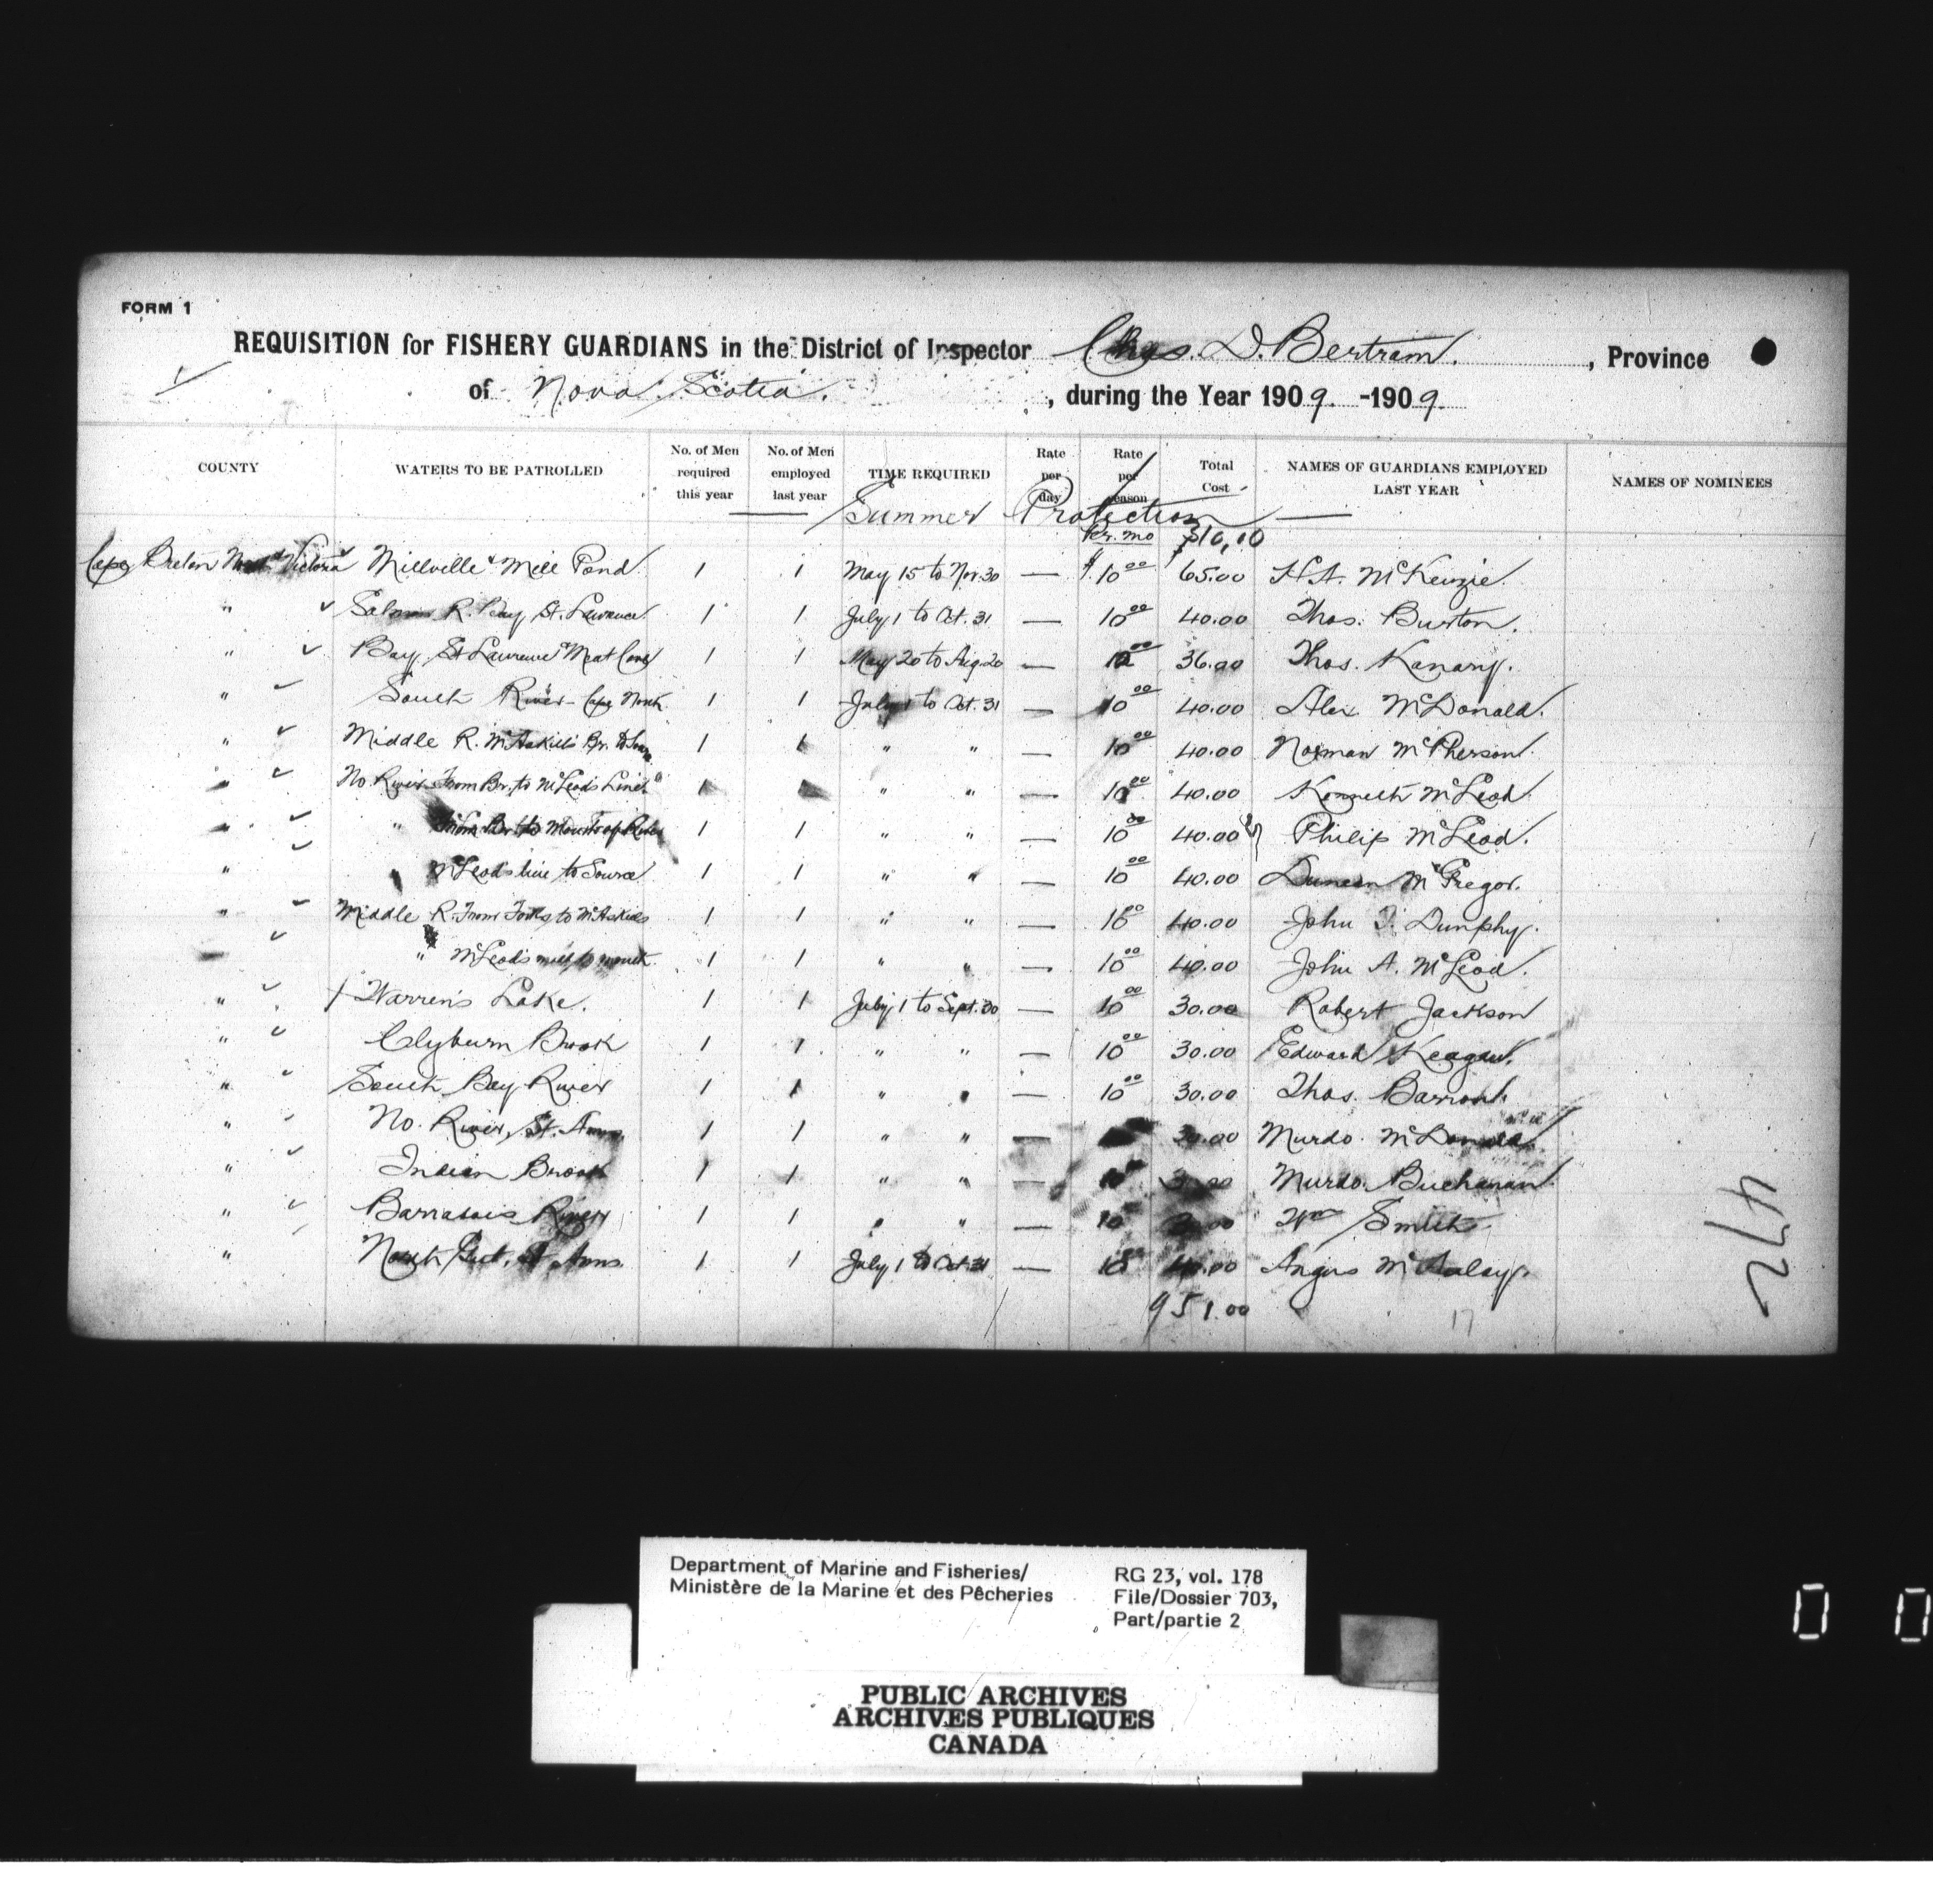 FORM 1
REQUISITION for FISHERY GUARDIANS in the District of Inspector Chas. D. Bertram. , Province
of Nova Scotia. , during the Year 1909. -1909.
COUNTY WATERS TO BE PATROLLED No. of Men required this year No. of Men employed last year TIME REQUIRED Rate per day Rate per season Total Cost NAMES OF GUARDIANS EMPLOYED LAST YEAR NAMES OF NOMINEES
Summer Protection
Pr. mo $10,10
Cape Breton North & Victoria Millville & Mill Pond 1 1 May 15 to Nov. 30 — $10 00 65.00 H.A. McKenzie.
" Salmon R. Bay St. Lawrence 1 1 July 1 to Oct. 31 — 10 00 40.00 Thos. Burton.
" Bay St Lawrence & Meat Cove 1 1 May 20 to Aug. 20 — 12 00 36.00 Thos. Kanary.
" South River - Cape North 1 1 July 1 to Oct. 31 — 10 00 40.00 Alex McDonald.
" Middle R. McAskill's Br. to 1 1 " " — 10 00 40.00 Norman McPherson.
" No. River From Br. to McLeods Line 1 1 " " — 10 00 40.00 Kenneth McLeod
" " Br. to Mouth of River 1 1 " " — 10 00 40.00 Philip McLeod.
" " McLeods line to Source 1 1 " " — 10 00 40.00 Duncan McGregor.
" Middle R. From Forks to McAskills 1 1 " " — 10 00 40.00 John J. Dunphy.
" " McLeods mill to mouth 1 1 " " — 10 00 40.00 John A. McLeod.
" Warren's Lake. 1 1 July 1 to Sept. 30 — 10 00 30.00 Robert Jackson
" Clyburn Brook 1 1 " " — 10 00 30.00 Edward Keagan.
" South Bay River 1 1 " " — 10 00 30.00 Thos. Barron
" No. River, St. Anns, 1 1 " " — 30.00 Murdo McDonald
" Indian Brook 1 1 " " — 10 30.00 Murdo Buchanan
" Barrasois River 1 1 " " — 10 30.00 Wm Smith
" North Gut, St. Anns. 1 1 July 1 to Oct. 31 — 10 00 40.00 Angus McAulay.
951.00
17
472
Department of Marine and Fisheries/
Ministère de la Marine et des Pêcheries
RG 23, vol. 178
File/Dossier 703,
Part/partie 2
PUBLIC ARCHIVES
ARCHIVES PUBLIQUES
CANADA
0 0